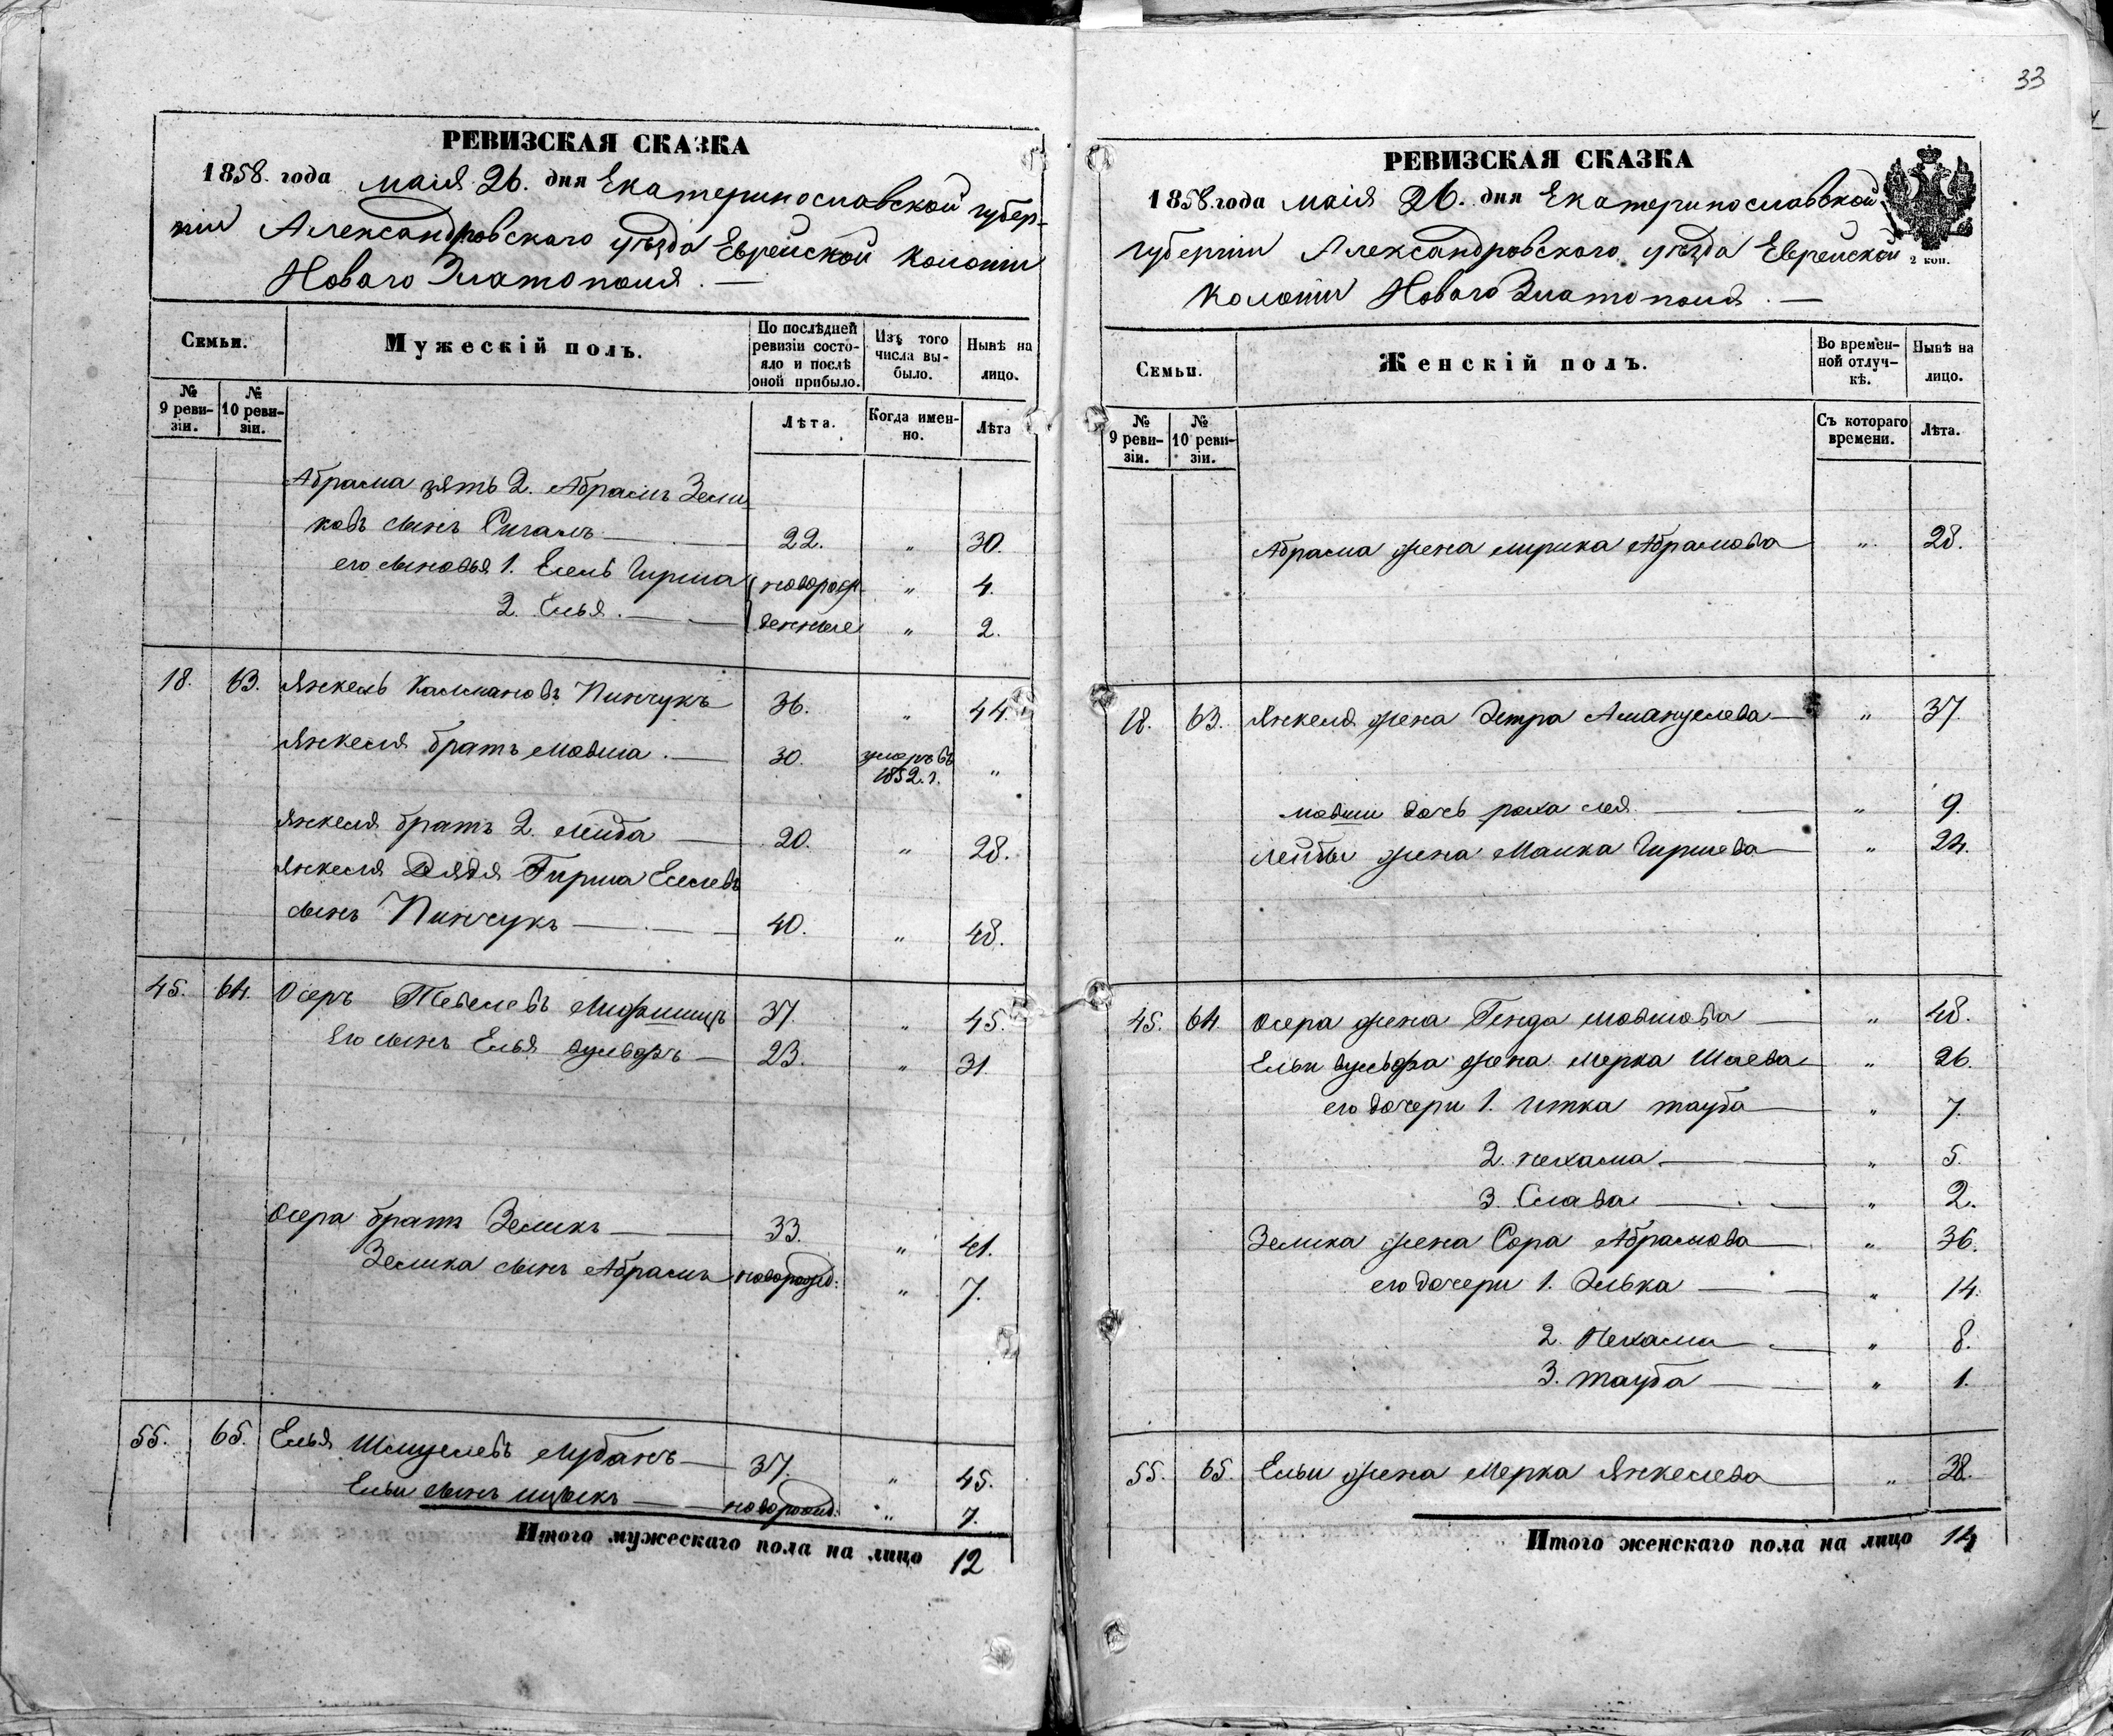 33
РЕВИЗСКАЯ СКАЗКА
1858. года маія 26. дня Екатеринославской губер-
ніи Александровскаго уѣзда Еврейской колоніи
Новаго Златополя. —
Семьи.
Мужескій полъ.
По послѣдней ревизіи состояло и послѣ оной прибыло.
Изъ того числа выбыло.
Нынѣ на лицо.
№ 9 ревизіи.
№ 10 ревизіи.
Лѣта.
Когда именно.
Лѣта
Абрама зять 2. Абрамъ Зели
ковъ сынъ 22. " 30.
его сыновья 1. Гирша новорож- " 4.
2. Елья. денные " 2.
18. 63. Янкель Калмановъ Пинчукъ 36. " 44.
Янкеля братъ Мовша. 30. умеръ въ 1852. г. "
Янкеля братъ 2. Лейба 20. " 28.
Янкеля Дядя Гирша Еселевъ
сынъ Пинчукъ 40. " 48.
45. 64. Осеръ Тевелевъ Лифшицъ 37. " 45.
Его сынъ Елья Вульфъ 23. " 31.
Осера братъ Зеликъ 33. " 41.
Зелика сынъ Абрамъ новорожд: " 7.
55. 65. Елья Шмулевъ Лубанъ 37. " 45.
Ельи сынъ Ицыкъ новорожд: " 7.
Итого мужескаго пола на лицо 12
РЕВИЗСКАЯ СКАЗКА
1858. года маія 26. дня Екатеринославской
губерніи Александровскаго уѣзда Еврейской
колоніи Новаго Златополя. —
2 коп.
Семьи.
Женскій полъ.
Во временной отлучкѣ.
Нынѣ на лицо.
№ 9 ревизіи.
№ 10 ревизіи.
Съ котораго времени.
Лѣта.
Абрама жена Мирка Абрамова " 28.
18. 63. Янкеля жена Эстра " 37.
Мовши дочь Раха Лея " 9.
Лейбы жена Малка Гиршева " 24.
45. 64. Осера жена Генда Мовшова " 48.
Ельи Вульфа жена Мерка Шаева " 26.
его дочери 1. Итка Тауба " 7.
2. Нехама " 5.
3. Слава " 2.
Зелика жена Сора Абрамова " 36.
его дочери 1. Элька " 14.
2. Нехама " 8.
3. Тауба " 1.
55. 65. Ельи жена Мерка Янкелева " 38.
Итого женскаго пола на лицо 14